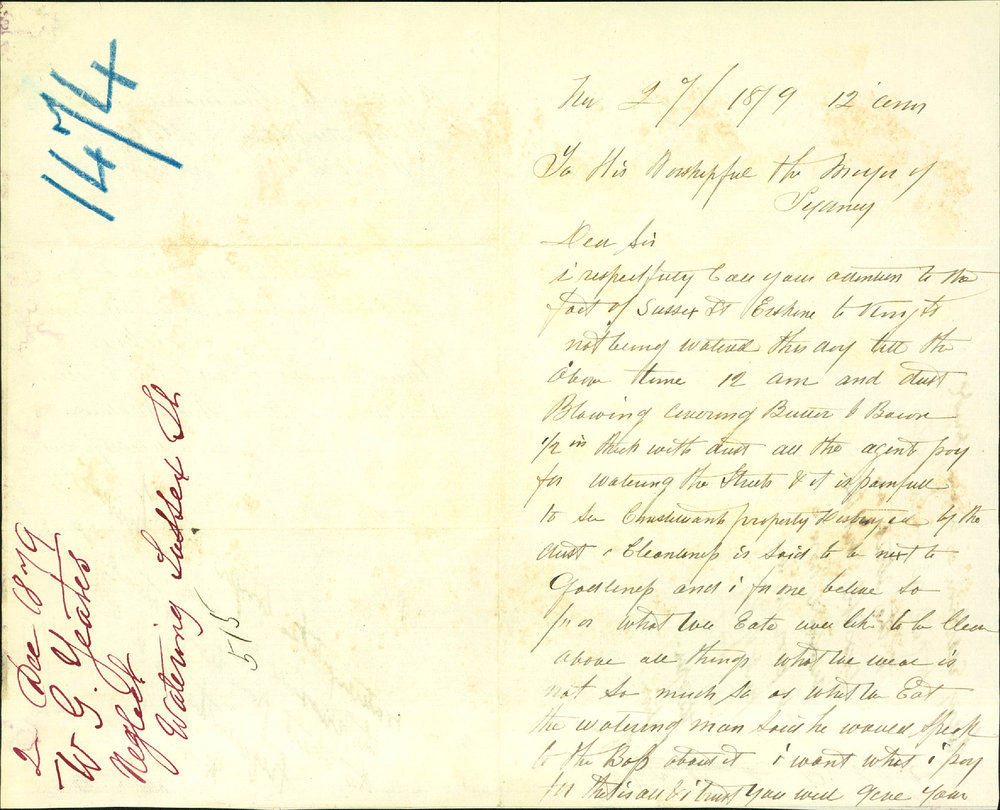 1474
2 Dec 1879
W G. Yeates
Neglect
Watering Sussex St
515
Nov 27/ 1879 12 am
To His Worshipful the Mayor of
Sydney
Dear Sir
i respectfully Call your attention to the
fact of Sussex St Erskine to King St
not being watered this day till the
above time 12 am and dust
Blowing Covering Butter & Bacon
1/2 in thick with dust all the agents pay
for watering the Streets & it is painfull
to see property Destroyed by the
dust Cleanliness is said to be next to
Godliness and i for one believe so
for what wee Eate wee like to be Clean
above all things what we wear is
not so much so as what we Eat
the watering man said he would speak
to the Boss about it i want what i pay
for that is all & i trust you will give your